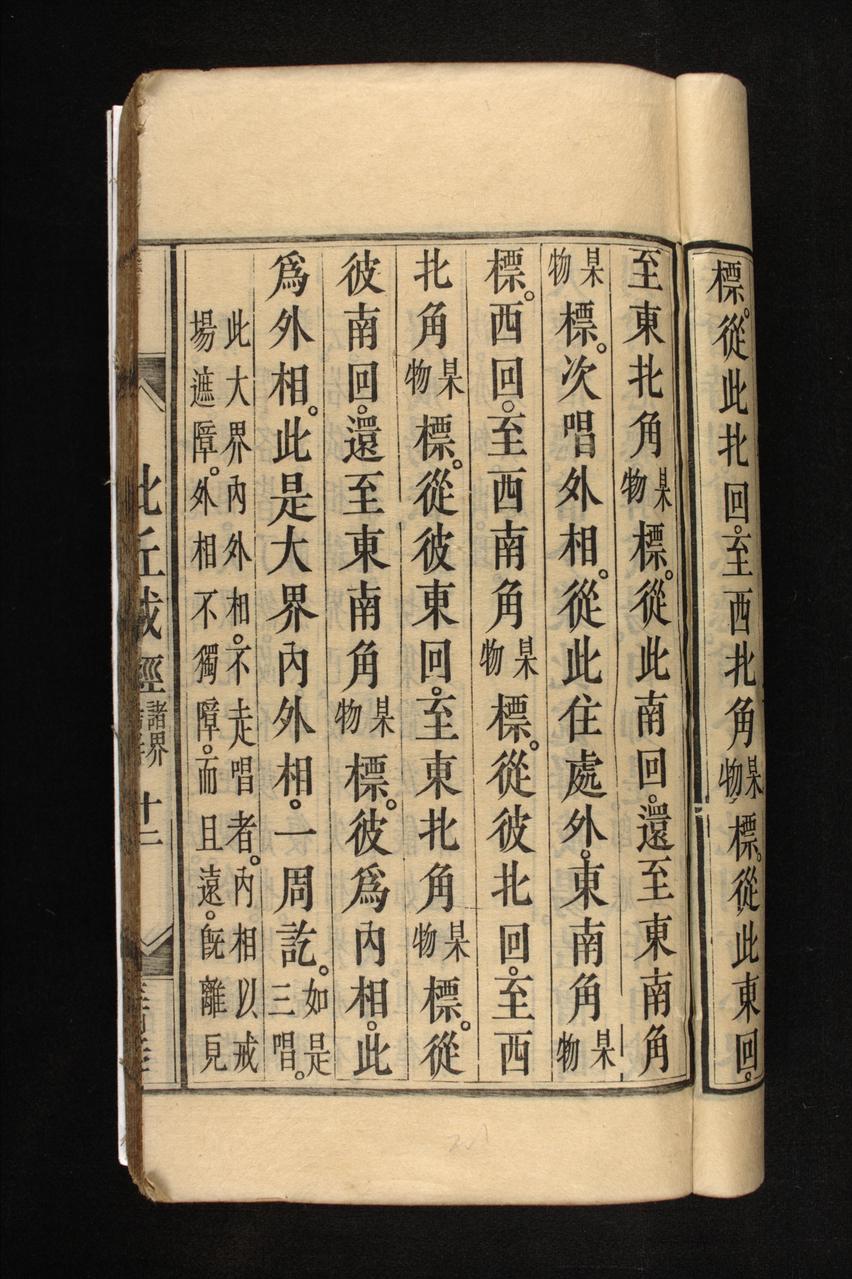 標。從此北回。至西北角某物標。從此東回。
至東北角某物標。從此南回。還至東南角
某物標。次唱外相。從此住處外。東南角某物
標。西回。至西南角某物標。從彼北回。至西
北角某物標。從彼東回。至東北角某物標。從
彼南回。還至東南角某物標。彼爲內相。此
爲外相。此是大界內外相。一周訖。如是三唱。
此大界內外相。不走唱者。內相以戒
場遮障。外相不獨障。而且遠。旣離見
比丘戒經 諸界 十二